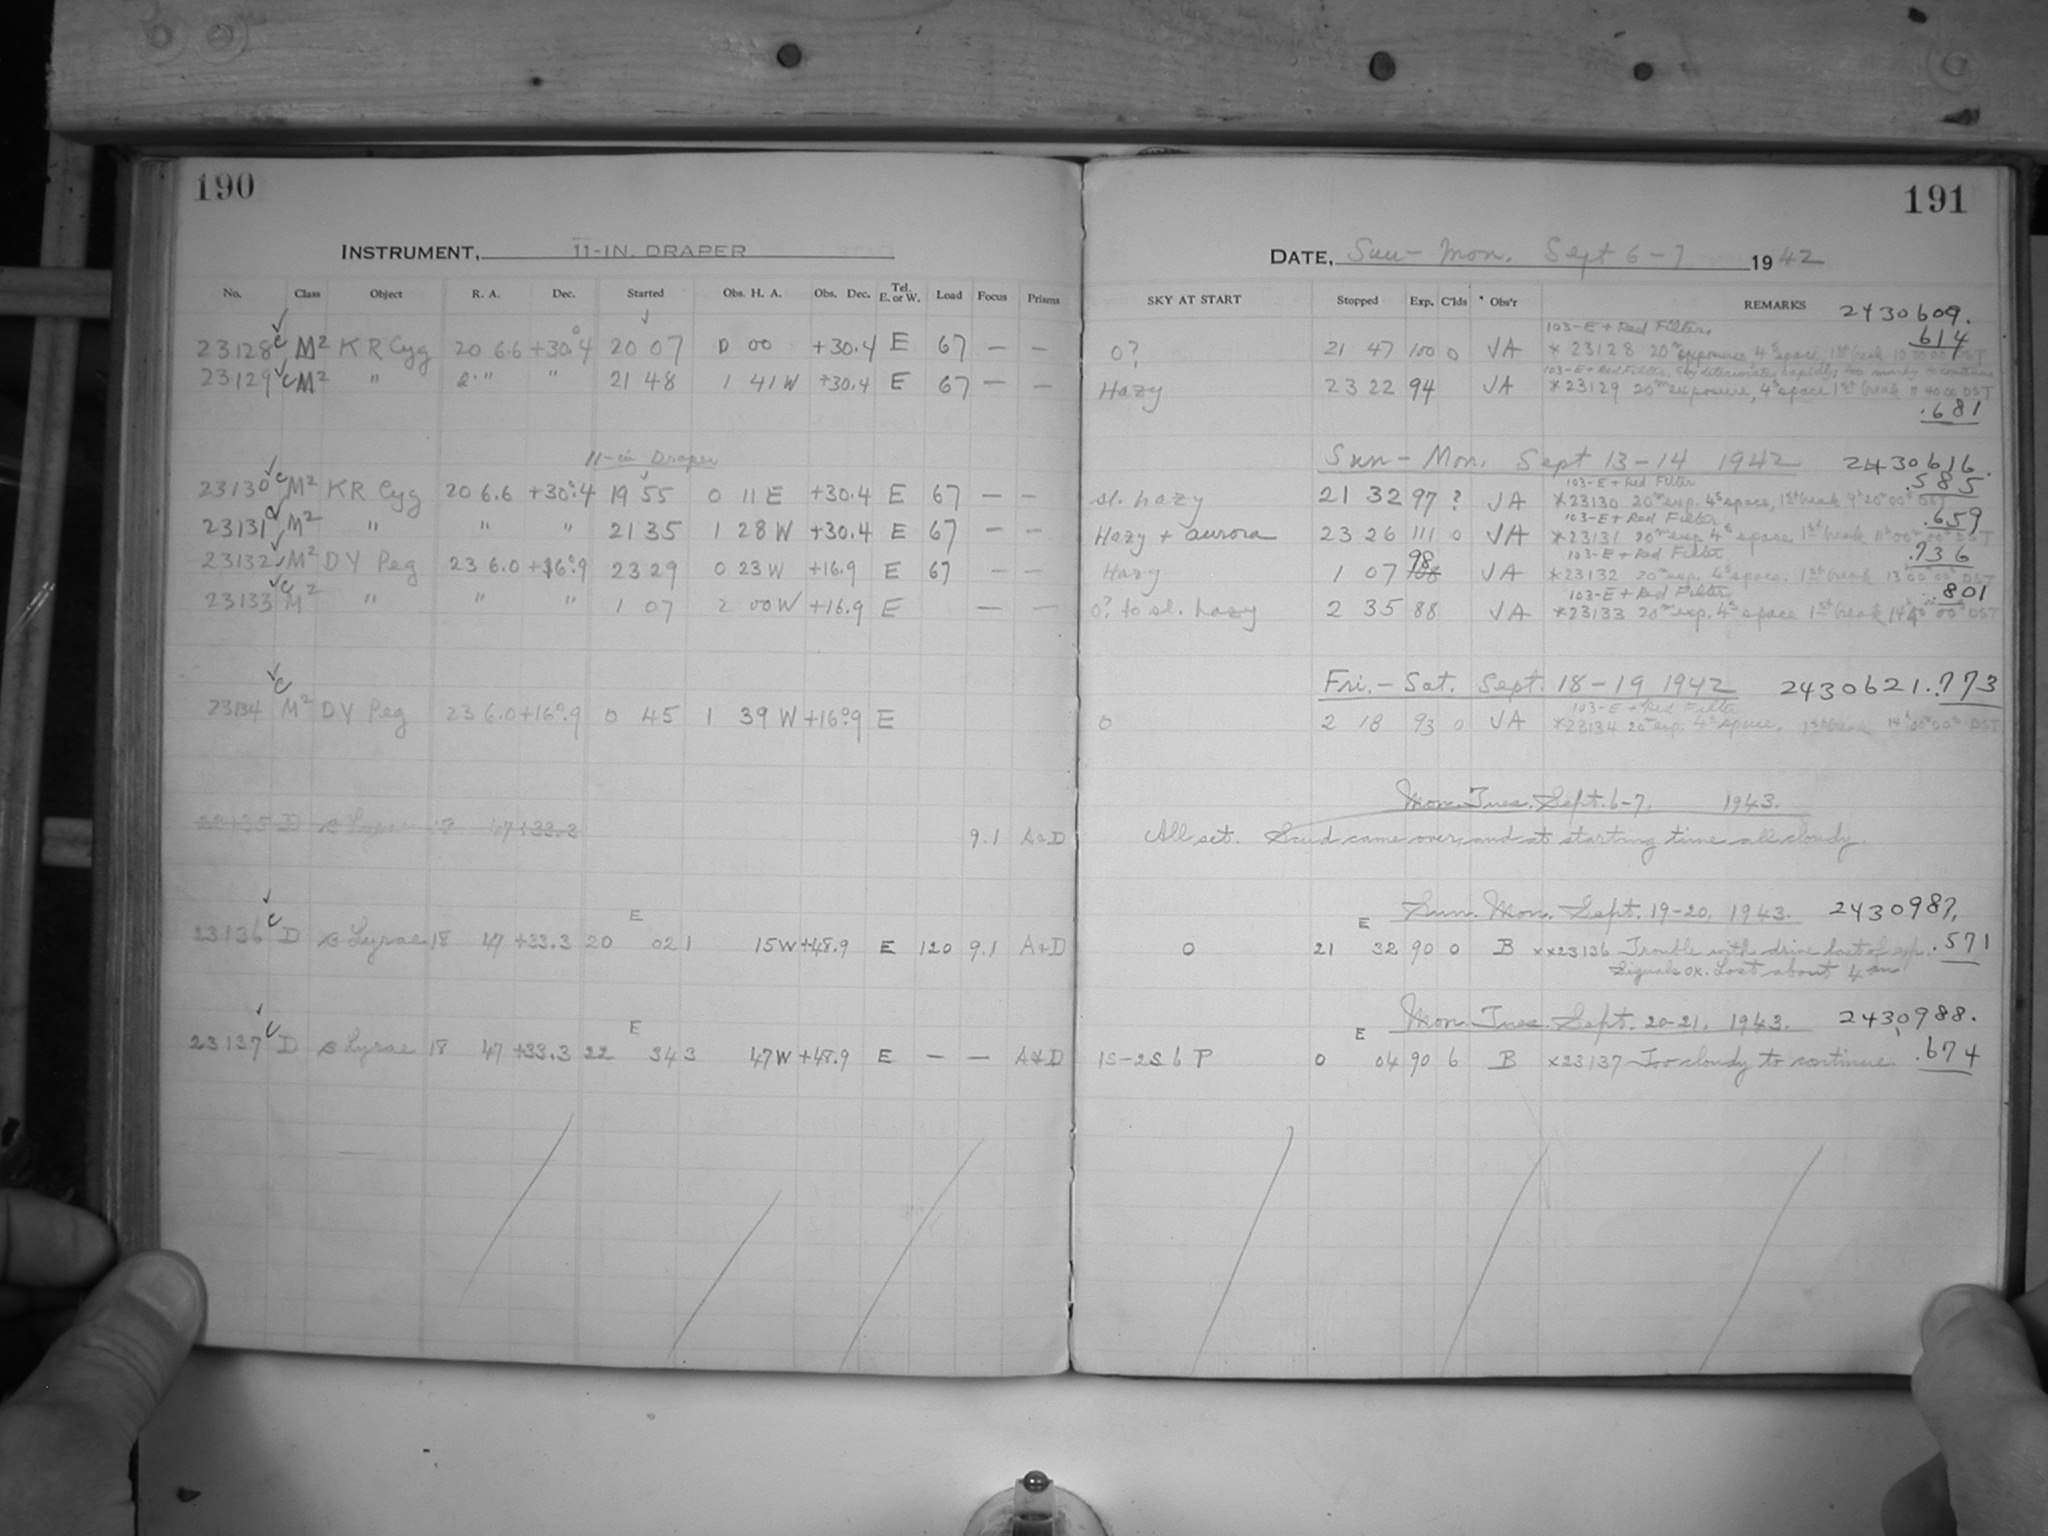 190
INSTRUMENT, 11-IN. DRAPER
No. Class Object R. A. Dec. Started Obs. H. A. Obs. Dec. Tel. E. or W. Load Focus Prisms
23128 c M2 KR Cyg 20 6.6 +30°.4 20 07 0 00 +30.4 E 67 — —
23129 c M2 " " " 21 48 1 41 W +30.4 E 67 — —
11-in Draper
23130 c M2 KR Cyg 20 6.6 +30°.4 19 55 0 11 E +30.4 E 67 — —
23131 c M2 " " " 21 35 1 28 W +30.4 E 67 — —
23132 M2 DY Peg 23 6.0 +16°.9 23 29 0 23 W +16.9 E 67 — —
23133 c M2 " " " 1 07 2 00 W +16.9 E — —
23134 c M2 DY Peg 23 6.0 +16°.9 0 45 1 39 W +16°.9 E
23135 D β Lyrae 18 47 +33.3 9.1 A+D
E
23136 c D β Lyrae 18 47 +33.3 20 02 1 15 W +48.9 E 120 9.1 A+D
E
23137 c D β Lyrae 18 47 +33.3 22 34 3 47 W +48.9 E — — A+D
191
DATE, Sun - Mon. Sept 6-7 1942
SKY AT START Stopped Exp. C'lds Obs'r REMARKS 2430609.
103-E + Red Filter. .614
0? 21 47 100 0 JA * 23128 20m exposures 4s space, 1st break 10 00 00 DST
103-E + Red Filter, Sky deteriorates rapidly, too murky to continue
Hazy 23 22 94 JA * 23129 20m exposure, 4s space 1st break 11 40 00 DST
.681
Sun - Mon. Sept 13-14 1942 2430616.
103-E + Red Filter .585
sl. hazy 21 32 97 ? JA *23130 20m exp. 4s space, 1st break 9h 20m 00s DST
103-E + Red Filter .659
Hazy + aurora 23 26 111 0 JA *23131 20m exp. 4s space. 1st break 11h 00m 00s DST
103-E + Red Filter .736
Hazy 1 07 98 JA *23132 20m exp. 4s space. 1st break 13h 00m 00s DST
103-E + Red Filter .801
0? to sl. hazy 2 35 88 JA *23133 20m exp. 4s space 1st break 14h 40m 00s DST
Fri. - Sat. Sept. 18-19 1942 2430621.773
103-E + Red Filter
0 2 18 93 0 JA *23134 20m exp. 4s space. 1st break 14h 00m 00s DST
Mon. Tues. Sept. 6-7, 1943.
All set. Scud came over, and at starting time all cloudy.
Sun. Mon. Sept. 19-20, 1943. 2430987.
E
0 21 32 90 0 B xx23136 Trouble with drive last of exp. .571
Signals OK. Lost about 4m
Mon. Tues. Sept. 20-21, 1943. 2430988.
E
1S-2S 6 P 0 04 90 6 B x23137 Too cloudy to continue. .674